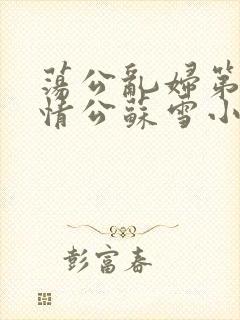 蕩公亂婦第
情公蘇雪小
彭富春